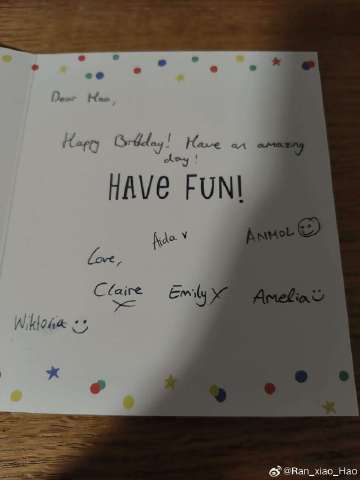 Dear Hao,
Happy Birthday! Have an amazing
day!
HAVE FUN!
Aida
ANMOL
Love,
Claire
Emily
Amelia
Wiktoria
@Ran_xiao_Hao